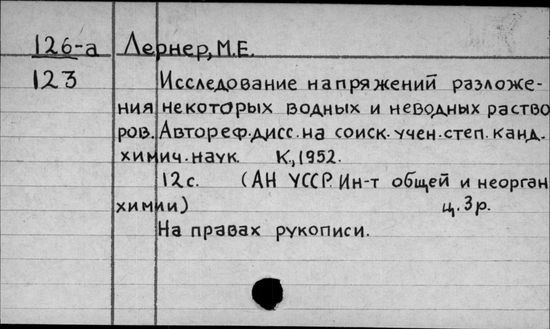 126-а Лернер, М.Е.
123 Исследование напряжений разложе-
ния некоторых водных и неводных раство
ров. Автореф. дисс. на соиск. учен. степ. канд.
химич. наук. К., 1952.
12 с. (АН УССР. Ин-т общей и неорган
химии) ц. 3 р.
На правах рукописи.